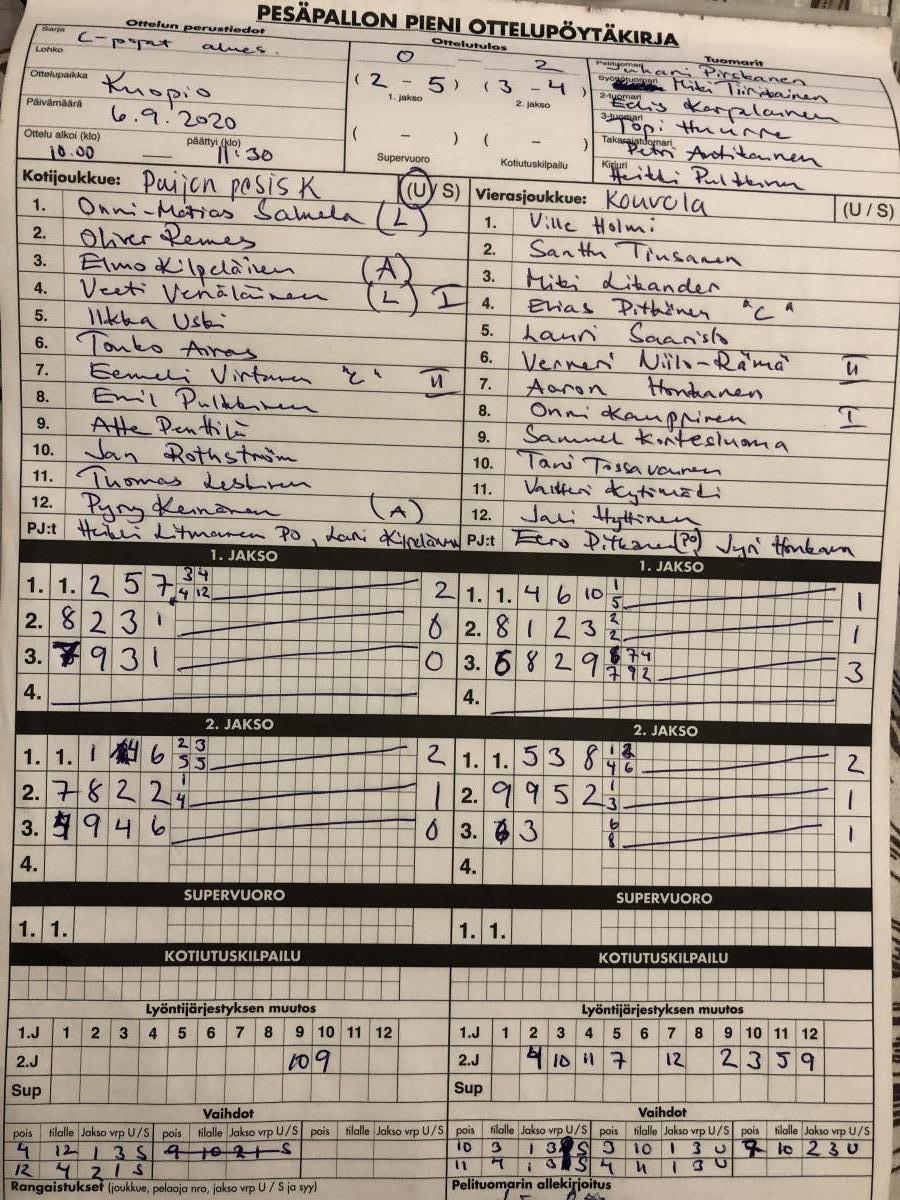 PESÄPALLON PIENI OTTELUPÖYTÄKIRJA
Ottelun perustiedot
Ottelutulos
Tuomarit
Sarja C-pojat
Lohko
0 — 2
(2 – 5) (3 – 4)
1. jakso 2. jakso
( – ) ( – )
Supervuoro Kotiutuskilpailu
Ottelupaikka Kuopio
Päivämäärä 6.9.2020
Ottelu alkoi (klo) päättyi (klo)
10.00 — 11:30
Pelituomari Juhani Pirskanen
Syöttötuomari Miki Tiiriäinen
2-tuomari Karpalainen
3-tuomari Topi Huurre
Takarajatuomari Petri Antikainen
Kirjuri Heikki Pulkkinen
Kotijoukkue: Puijon pesis K (U / S)
1. Onni-Matias Salmela (L)
2. Oliver Remes
3. Elmo Kilpeläinen (A)
4. Veeti Venäläinen (L) I
5. Ilkka Uski
6. Touko Airas
7. Eemeli Virtanen "C" II
8. Emil Pulkkinen
9. Atte Penttilä
10. Jan Rothström
11. Thomas Leskinen
12. Pyry Keinänen (A)
PJ:t Heikki Litmanen PO, Lari Kilpeläinen
Vierasjoukkue: Kouvola (U / S)
1. Ville Holmi
2. Santtu Tiusanen
3. Miki Likander
4. Elias Pitkänen "C"
5. Lauri Saaristo
6. Verneri Niilo-Rämä II
7. Aaron Honkanen
8. Onni Kauppinen I
9. Samuel Kortesluoma
10. Tani Tossavainen
11. Valtteri Kytömäki
12. Jali Hyttinen
PJ:t Eero Pitkänen (PO) Jyri Honkanen
1. JAKSO
1. 1. 2 5 7 3 4 2
4 12
2. 8 2 3 1 0
3. 7 9 3 1 0
4.
1. JAKSO
1. 1. 4 6 10 1 1
5
2. 8 1 2 3 2 1
2
3. 6 8 2 9 6 7 4 3
7 9 2
4.
2. JAKSO
1. 1. 1 4 6 2 3 2
5 5
2. 7 8 2 2 1 1
4
3. 9 9 4 6 0
4.
2. JAKSO
1. 1. 5 3 8 1 2 2
4 6
2. 9 9 5 2 1 1
3
3. 6 3 6 1
8
4.
SUPERVUORO
1. 1.
SUPERVUORO
1. 1.
KOTIUTUSKILPAILU
KOTIUTUSKILPAILU
Lyöntijärjestyksen muutos
1.J 1 2 3 4 5 6 7 8 9 10 11 12
2.J 10 9
Sup
Lyöntijärjestyksen muutos
1.J 1 2 3 4 5 6 7 8 9 10 11 12
2.J 4 10 11 7 12 2 3 5 9
Sup
Vaihdot
pois tilalle Jakso vrp U / S pois tilalle Jakso vrp U / S pois tilalle Jakso vrp U / S
4 12 1 3 S 9 10 2 1 S
12 4 2 1 S
Vaihdot
pois tilalle Jakso vrp U / S pois tilalle Jakso vrp U / S pois tilalle Jakso vrp U / S
10 3 1 3 S 3 10 1 3 U 7 10 2 3 U
11 4 1 3 S 4 11 1 3 U
Rangaistukset (joukkue, pelaaja nro, jakso vrp U / S ja syy)
Pelituomarin allekirjoitus